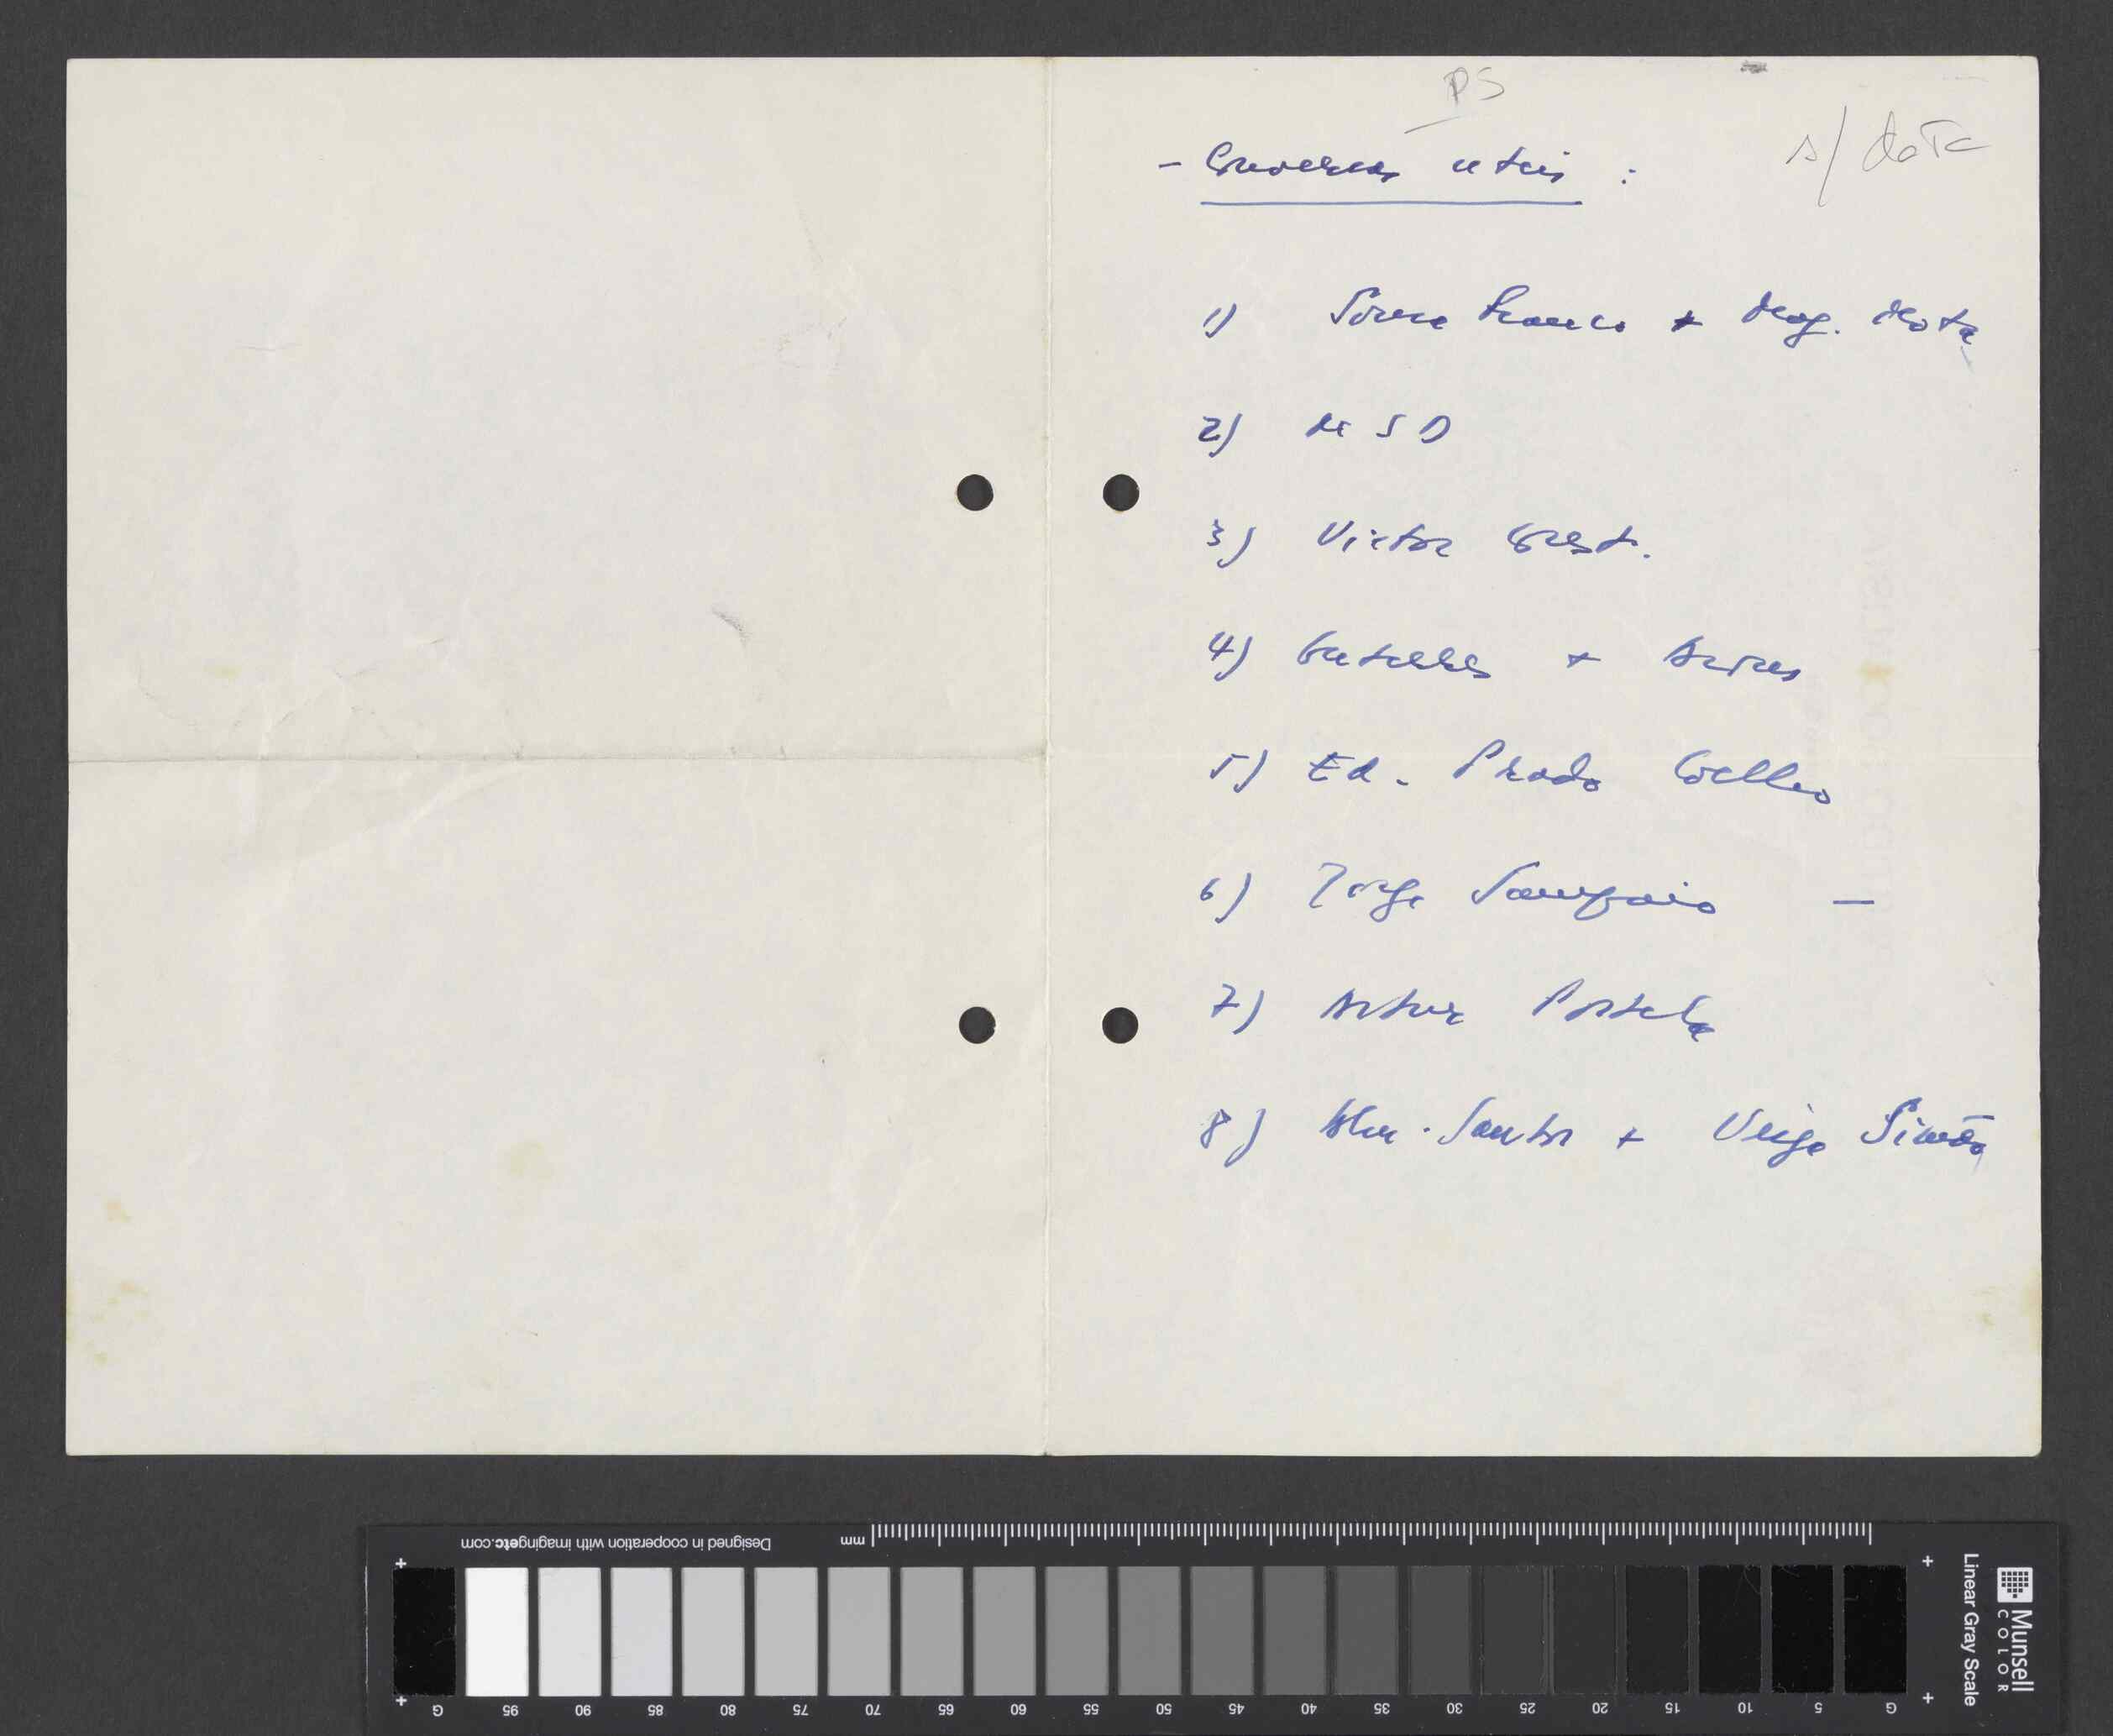 PS
s/ data
- Conversas uteis :
1) Sousa Franco + Mag. Mota
2) M S D
3) Victor Const.
4) Guterres + Aires
5) Ed. Prado Coelho
6) Jorge Sampaio —
7) Artur Portela
8) Alm. Santos + Veiga Simão
Designed in cooperation with imagingetc.com
mm
Munsell
COLOR
Linear Gray Scale
G 95 90 85 80 75 70 65 60 55 50 45 40 35 30 25 20 15 10 5 G